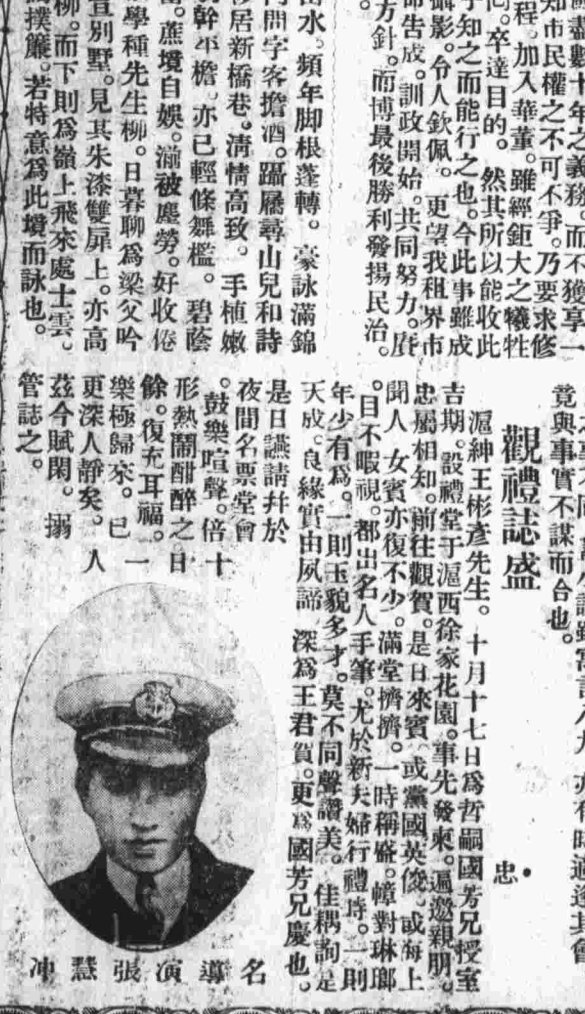 盡數十年之義務。而不獲享一
知市民權之不可不爭。乃要求修
程。加入華董。雖經鉅大之犧牲
卒達目的。然其所以能收此
乎知之而能行之也。今此事雖成
攝影。令人欽佩。更望我租界市
告成。訓政開始。共同努力。賡
方針。而博最後勝利發揚民治。
水。頻年脚根蓬轉。豪詠滿錦
問字客擔酒。躡屩尋山兒和詩
移居新橋巷。淸情高致。手植嫩
幹平檐。亦已輕條舞檻。碧蔭
。蔗境自娛。湔被塵勞。好收倦
學種先生柳。日暮聊爲梁父吟
別墅。見其朱漆雙扉上。亦高
柳。而下則爲嶺上飛來處士雲。
撲簾。若特意爲此墳而詠也。
竟與事實不謀而合也。
觀禮誌盛
忠
滬紳王彬彥先生。十月十七日爲哲嗣國芳兄授室
吉期。設禮堂于滬西徐家花園。事先發柬。遍邀親朋。
忠屬相知。前往觀賀。是日來賓 或黨國英俊。或海上
聞人 女賓亦復不少。滿堂擠擠。一時稱盛。幛對琳瑯
。目不暇視。都出名人手筆。尤於新夫婦行禮時。一則
年少有爲。一則玉貌多才。莫不同聲讚美。佳耦詢是
天成。良緣實由夙諦 深爲王君賀。更爲國芳兄慶也。
是日讌請幷於
夜間名票堂會
。鼓樂喧聲。倍十
形熱鬧酣醉之日
餘。復充耳福。一
樂極歸來。已一
更深人靜矣。人
茲今賦閑。搦
管誌之。
名導演張慧冲